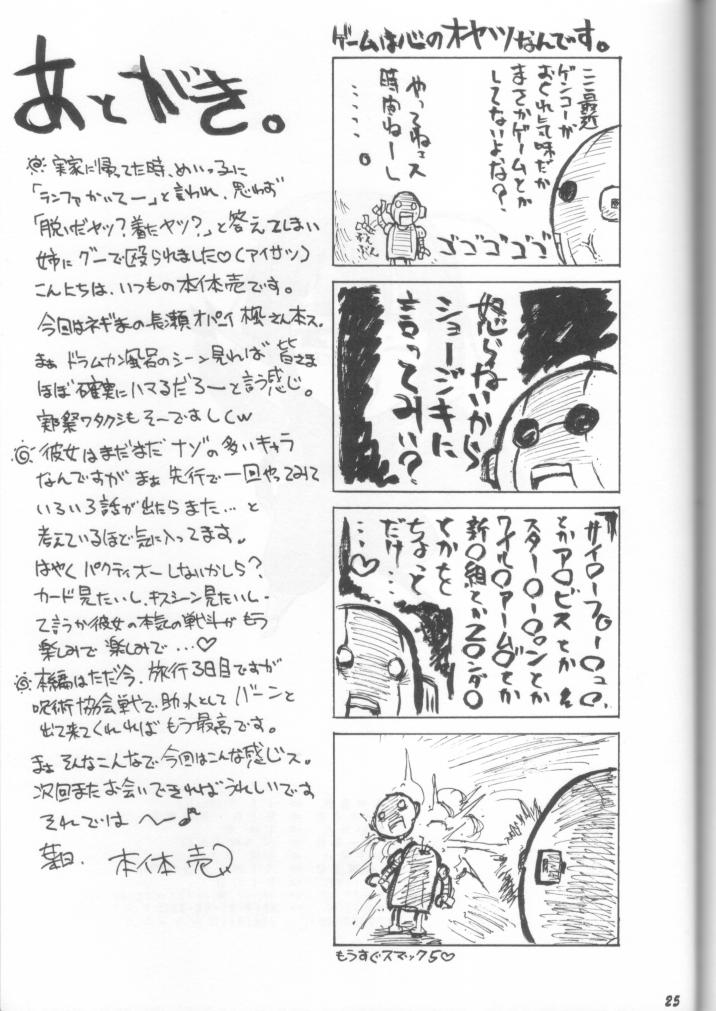 あとがき。
実家に帰ってた時、めいっ子に
「ランファかいてー」と言われ、思わず
「脱いだヤツ?着たヤツ?」と答えてしまい
姉にグーで殴られました♡(アイサツ)
こんにちは、いつもの本体売です。
今回はネギまの長瀬オパイ楓さん本ス。
まぁ ドラムカン風呂のシーン見れば皆さま
ほぼ確実にハマるだろーと言う感じ。
実際ワタクシもそーですしw
彼女はまだまだ ナゾの多いキャラ
なんですが まぁ 先行で一回やってみて
いろいろ話が出たらまた…と
考えているほど気に入ってます。
はやく パクティオーしないかしら?
カード見たいし、キスシーン見たいし・
て言うか彼女の本気の戦斗がもう
楽しみで楽しみで…♡
本編はただ今、旅行3日目ですが
呪術協会戦で助っ人として バーンと
出て来てくれればもう最高です。
まぁ そんなこんなで今回はこんな感じス。
次回またお会いできればうれしいです
それでは へ〜♪
本体売
ゲームは心のオヤツなんです。
ここ最近
ゲンコーが
おくれ気味だが
まさかゲームとか
してないよな?
やってねェス
時間ねーし
……。
ゴゴゴゴゴ
怒らないから
ショージキに
言ってみい?
サイ○ーフ○ー○ュ○、
とかア○ビスとか
スター○ー○ンとか
ワイル○アーム○とか
新○組とかZ○ンダ○
とかをと
ちょっと
だけ…
…♡
もうすぐスマック5♡
25